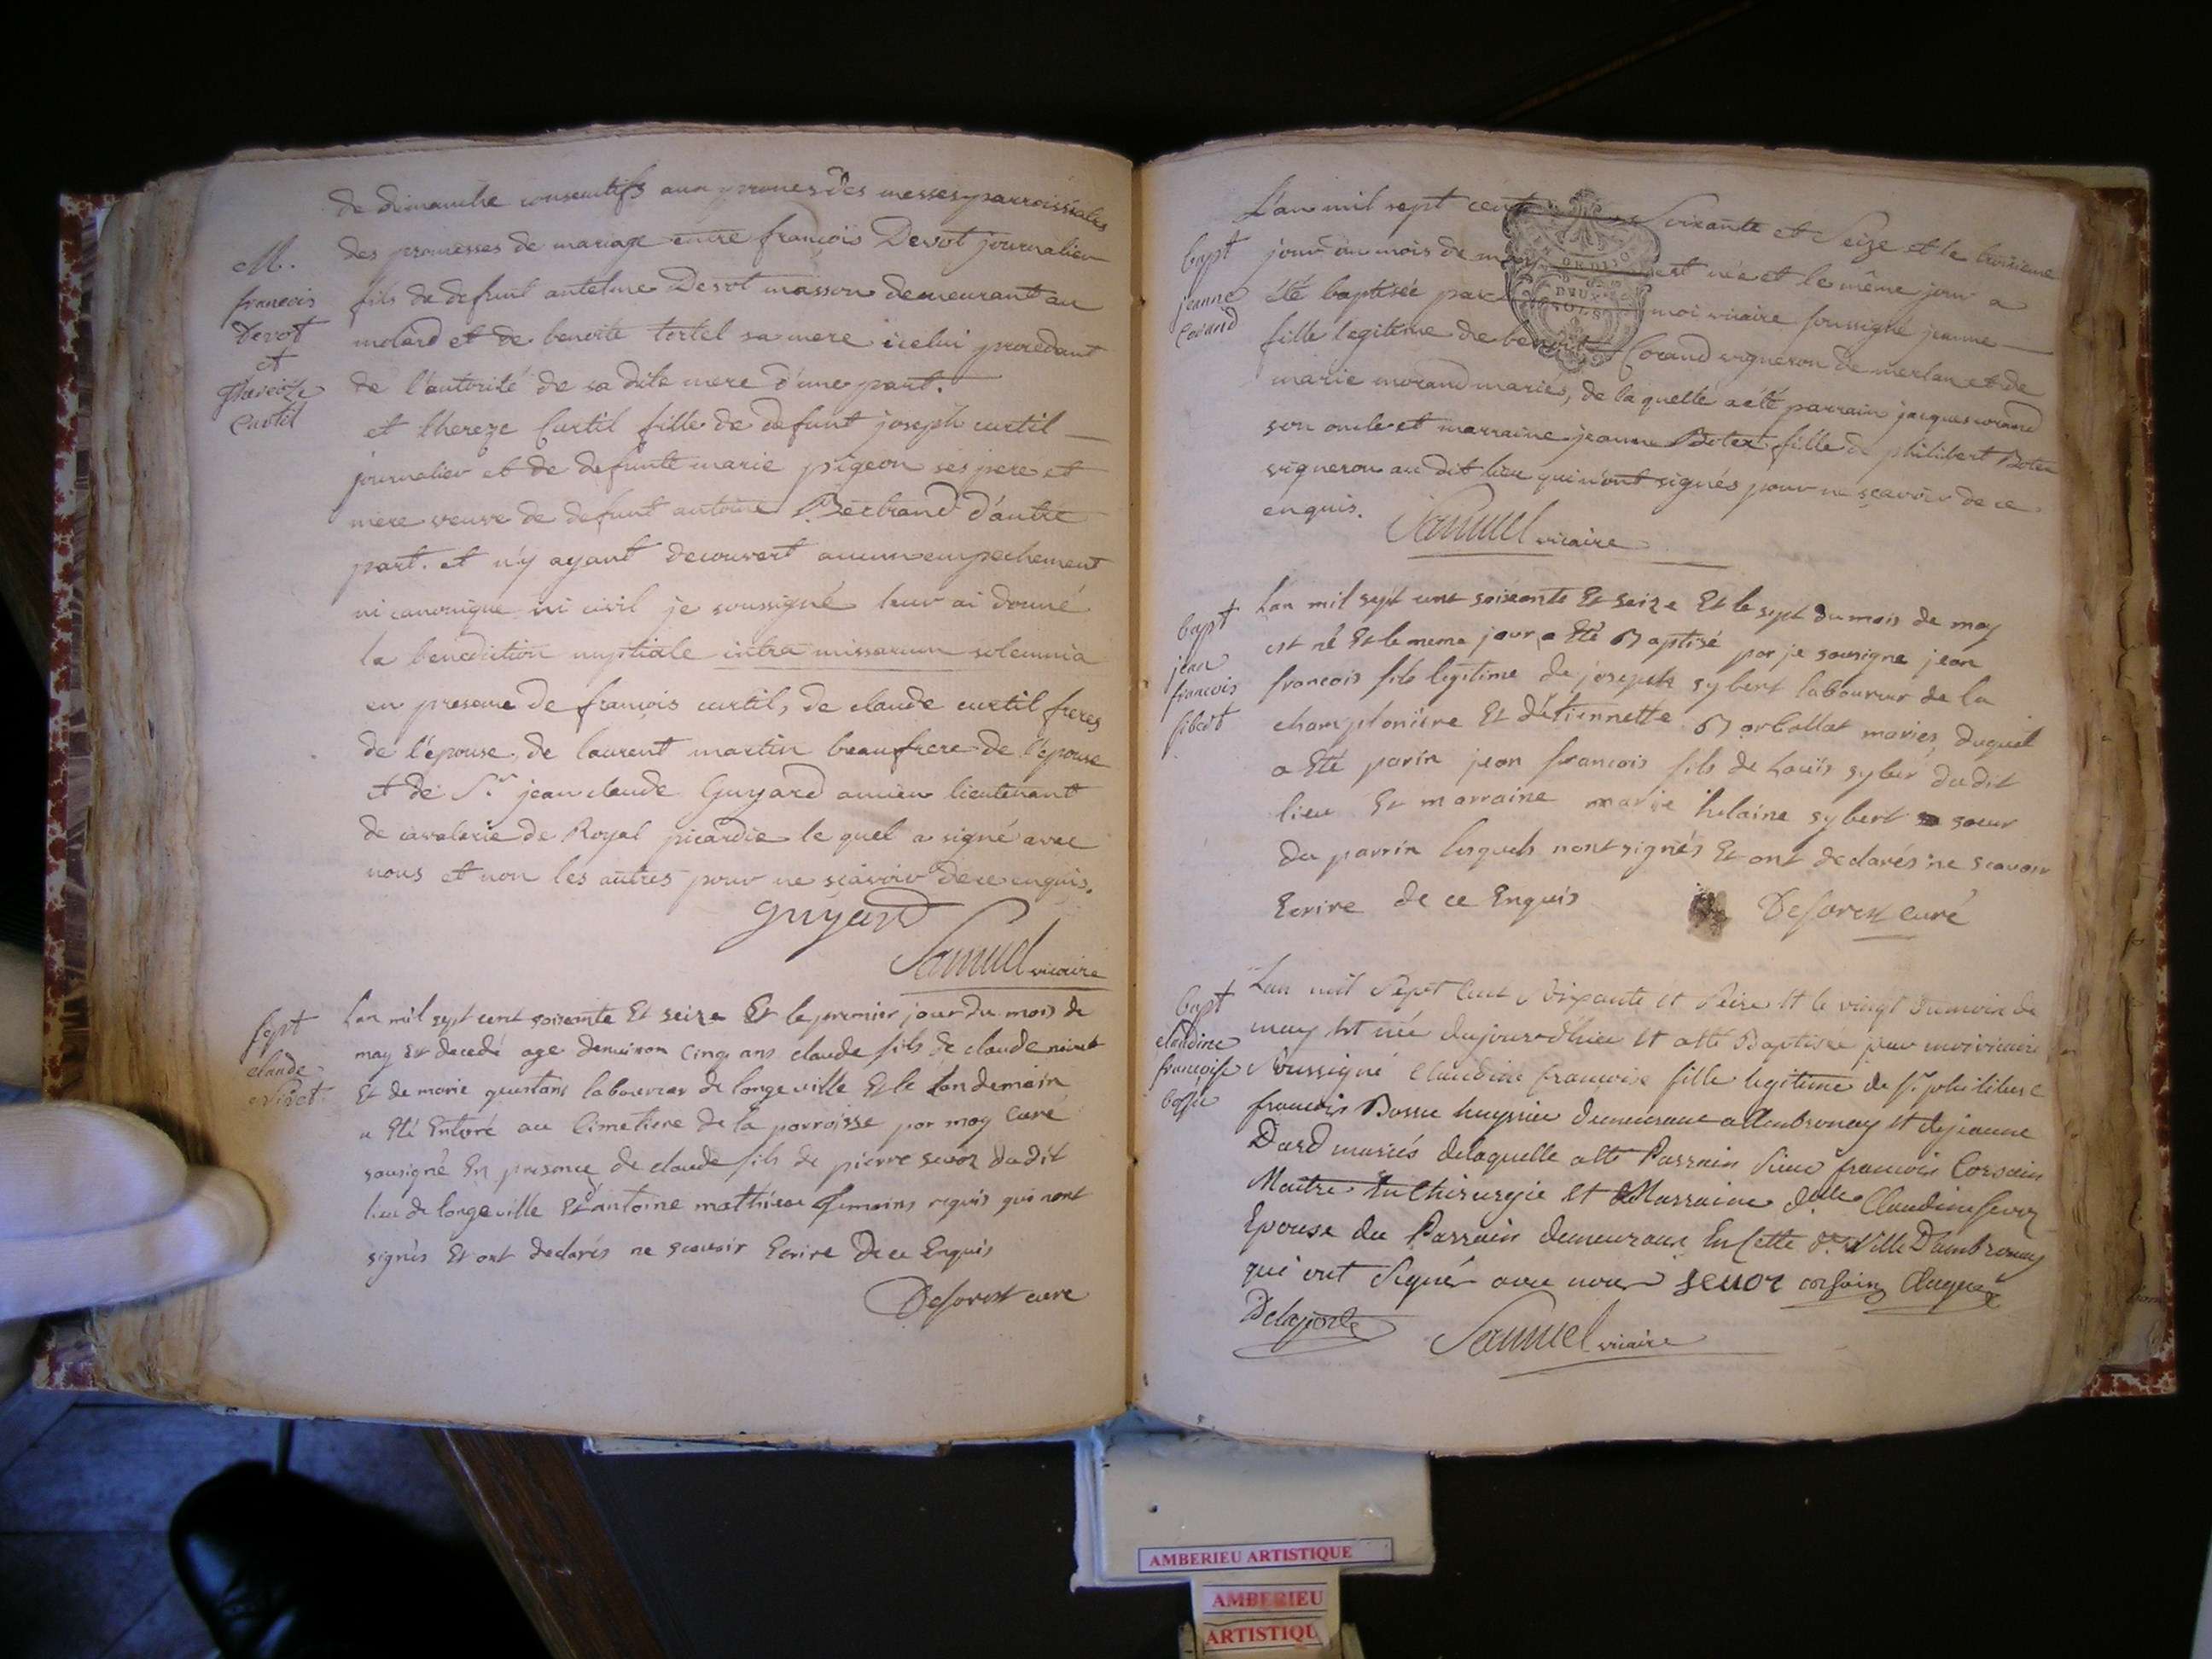 de dimanche consecutifs aux prones des messes parroissiales
M.
françois
Devot
et
thereze
Curtil
des promesses de mariage entre françois Devot journalier
fils de defunt antelme Devot masson demeurant au
molard et de benoite tertel sa mere icelui procedant
de l'autorité de sa dite mere d'une part.
et thereze Curtil fille de defunt joseph curtil
journalier et de defunte marie pigeon ses pere et
mere veuve de defunt antoine Bertrand d'autre
part. et n'y ayant decouvert aucun empechement
ni canonique ni civil je soussigné leur ai donné
la benediction nuptiale intra missarum solemnia
en presence de françois curtil, de claude curtil freres
de l'épouse, de laurent martin beaufrere de l'épouse
et de Sr jean claude Guyard ancien lieutenant
de cavalerie de Royal picardie le quel a signé avec
nous et non les autres pour ne sçavoir de ce enquis.
guyard
Samuel vicaire
sept
claude
nivet
Lan mil sept cent soixante Et seize Et le premier jour du mois de
may Est decedé age denviron cinq ans claude fils de claude nivet
Et de marie laboureur de longeville Et le landemain
a Eté Enteré au Cimetiere de la parroisse par moy Curé
sousigné En presence de claude fils de pierre sevoz dudit
lieu de longeville Et antoine mathieu temoins requis qui nont
signés Et ont declarés ne scavoir Ecrire De ce Enquis
Deforest curé
L'an mil sept cent Soixante et Seize et le troisieme
bapt
jeanne
Corand
jour du mois de may est née et le même jour a
été baptisée par moi vicaire soussigné jeanne
fille legitime de benoit Corand vigneron de merlan et de
marie morand mariés, de laquelle a été parrain jacques corand
son oncle et marraine jeanne Botex fille de philibert Botex
vigneron au dit lieu qui n'ont signés pour ne sçavoir de ce
enquis.
Samuel vicaire
bapt
jean
francois
sibert
Lan mil sept cent soixante Et seize Et le sept du mois de may
est né Et le meme jour a Eté Baptisé par je sousigne jean
francois fils legitime de joseph sybert laboureur de la
championiere Et d'étiennette Barballat mariés, duquel
a Eté parin jean francois fils de Louis syber dudit
lieu Et marraine marie helaine sybert soeur
du parrin lesquels nont signés Et ont declarés ne scavoir
Ecrire de ce Enquis
Deforest curé
bapt
claudine
françoise
bossu
Lan mil Sept Cent Soixante et Seize et le vingt du mois de
may est née dujourd'huy et a été Baptisée par moi vicaire
soussigné Claudine francoise fille legitime de Sr philibert
francois Bossu huyssier demeurant a Ambronay et de jeanne
Dard mariés de laquelle a été Parrain Sieur francois Corsain
Maitre En Chirurgie et Marraine dlle Claudine sevoz
Epouse du Parrain demeurant En Cette dte Ville D'ambronay
qui ont Signé avec nous sevoz corsain
Delaporte
Samuel vicaire
DEUX
SOLS
AMBERIEU ARTISTIQUE
AMBERIEU
ARTISTIQU